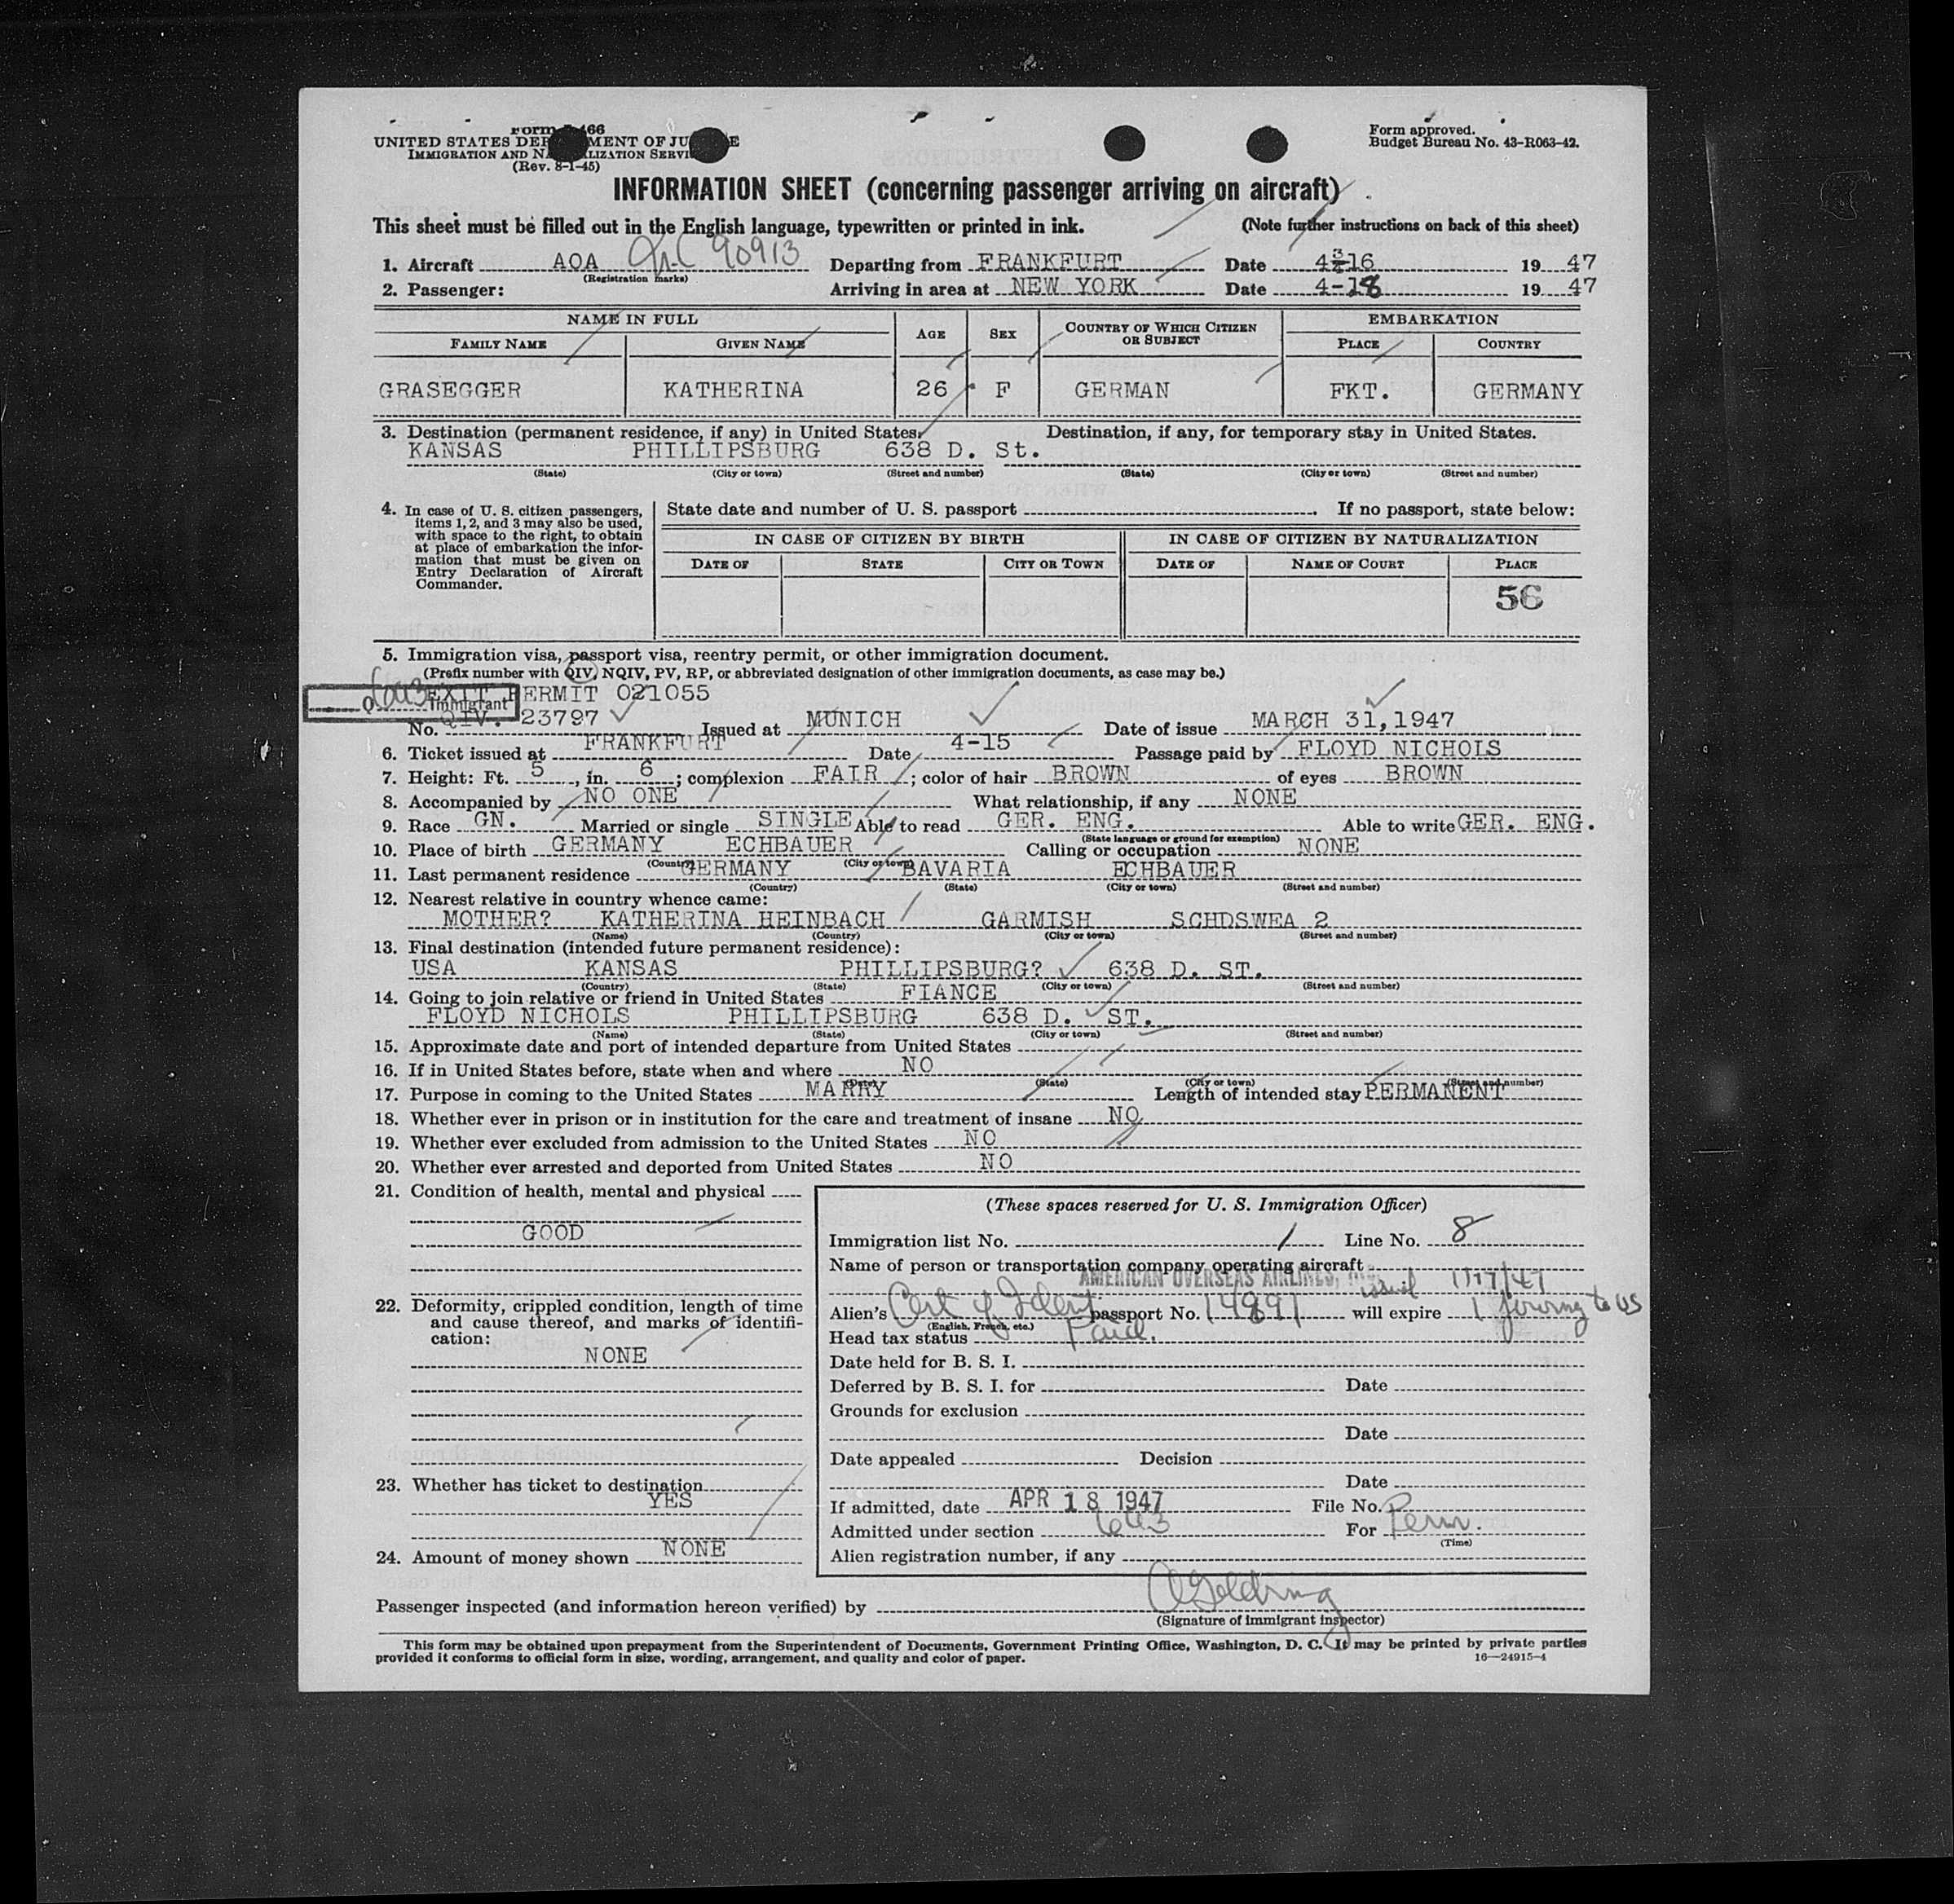 Form I-466
UNITED STATES DEPARTMENT OF JUSTICE
IMMIGRATION AND NATURALIZATION SERVICE
(Rev. 8-1-45)
Form approved.
Budget Bureau No. 43-R063-42.
INFORMATION SHEET (concerning passenger arriving on aircraft)
This sheet must be filled out in the English language, typewritten or printed in ink. (Note further instructions on back of this sheet)
1. Aircraft AOA 90913 Departing from FRANKFURT Date 4-16 1947
(Registration marks)
2. Passenger: Arriving in area at NEW YORK Date 4-18 1947
NAME IN FULL AGE SEX COUNTRY OF WHICH CITIZEN OR SUBJECT EMBARKATION
FAMILY NAME GIVEN NAME PLACE COUNTRY
GRASEGGER KATHERINA 26 F GERMAN FKT. GERMANY
3. Destination (permanent residence, if any) in United States. Destination, if any, for temporary stay in United States.
KANSAS PHILLIPSBURG 638 D. St.
(State) (City or town) (Street and number) (State) (City or town) (Street and number)
4. In case of U. S. citizen passengers, items 1, 2, and 3 may also be used, with space to the right, to obtain at place of embarkation the information that must be given on Entry Declaration of Aircraft Commander.
State date and number of U. S. passport If no passport, state below:
IN CASE OF CITIZEN BY BIRTH IN CASE OF CITIZEN BY NATURALIZATION
DATE OF STATE CITY OR TOWN DATE OF NAME OF COURT PLACE
56
5. Immigration visa, passport visa, reentry permit, or other immigration document.
(Prefix number with QIV, NQIV, PV, RP, or abbreviated designation of other immigration documents, as case may be.)
EXIT PERMIT 021055
Immigrant
No. QIV. 23797 Issued at MUNICH Date of issue MARCH 31, 1947
6. Ticket issued at FRANKFURT Date 4-15 Passage paid by FLOYD NICHOLS
7. Height: Ft. 5, in. 6; complexion FAIR; color of hair BROWN of eyes BROWN
8. Accompanied by NO ONE What relationship, if any NONE
9. Race GN. Married or single SINGLE Able to read GER. ENG. Able to write GER. ENG.
(State language or ground for exemption)
10. Place of birth GERMANY ECHBAUER Calling or occupation NONE
(Country) (City or town)
11. Last permanent residence GERMANY BAVARIA ECHBAUER
(Country) (State) (City or town) (Street and number)
12. Nearest relative in country whence came:
MOTHER? KATHERINA HEINBACH GARMISH SCHDSWEA 2
(Name) (Country) (City or town) (Street and number)
13. Final destination (intended future permanent residence):
USA KANSAS PHILLIPSBURG? 638 D. ST.
(Country) (State) (City or town) (Street and number)
14. Going to join relative or friend in United States FIANCE
FLOYD NICHOLS PHILLIPSBURG 638 D. ST.
(Name) (State) (City or town) (Street and number)
15. Approximate date and port of intended departure from United States
16. If in United States before, state when and where NO
(Date) (State) (City or town) (Street and number)
17. Purpose in coming to the United States MARRY Length of intended stay PERMANENT
18. Whether ever in prison or in institution for the care and treatment of insane NO
19. Whether ever excluded from admission to the United States NO
20. Whether ever arrested and deported from United States NO
21. Condition of health, mental and physical
GOOD
22. Deformity, crippled condition, length of time and cause thereof, and marks of identification:
NONE
23. Whether has ticket to destination
YES
24. Amount of money shown NONE
(These spaces reserved for U. S. Immigration Officer)
Immigration list No. 1 Line No. 8
Name of person or transportation company operating aircraft
AMERICAN OVERSEAS AIRLINES, INC. issued 1/17/47
Alien's Cert of Ident passport No. 14891 will expire 1 journey to US
(English, French, etc.)
Head tax status Paid.
Date held for B. S. I.
Deferred by B. S. I. for Date
Grounds for exclusion
Date
Date appealed Decision
Date
If admitted, date APR 18 1947 File No.
Admitted under section 6a3 For Perm.
(Time)
Alien registration number, if any
Passenger inspected (and information hereon verified) by
(Signature of immigrant inspector)
This form may be obtained upon prepayment from the Superintendent of Documents, Government Printing Office, Washington, D. C. It may be printed by private parties
provided it conforms to official form in size, wording, arrangement, and quality and color of paper. 16—24915-4